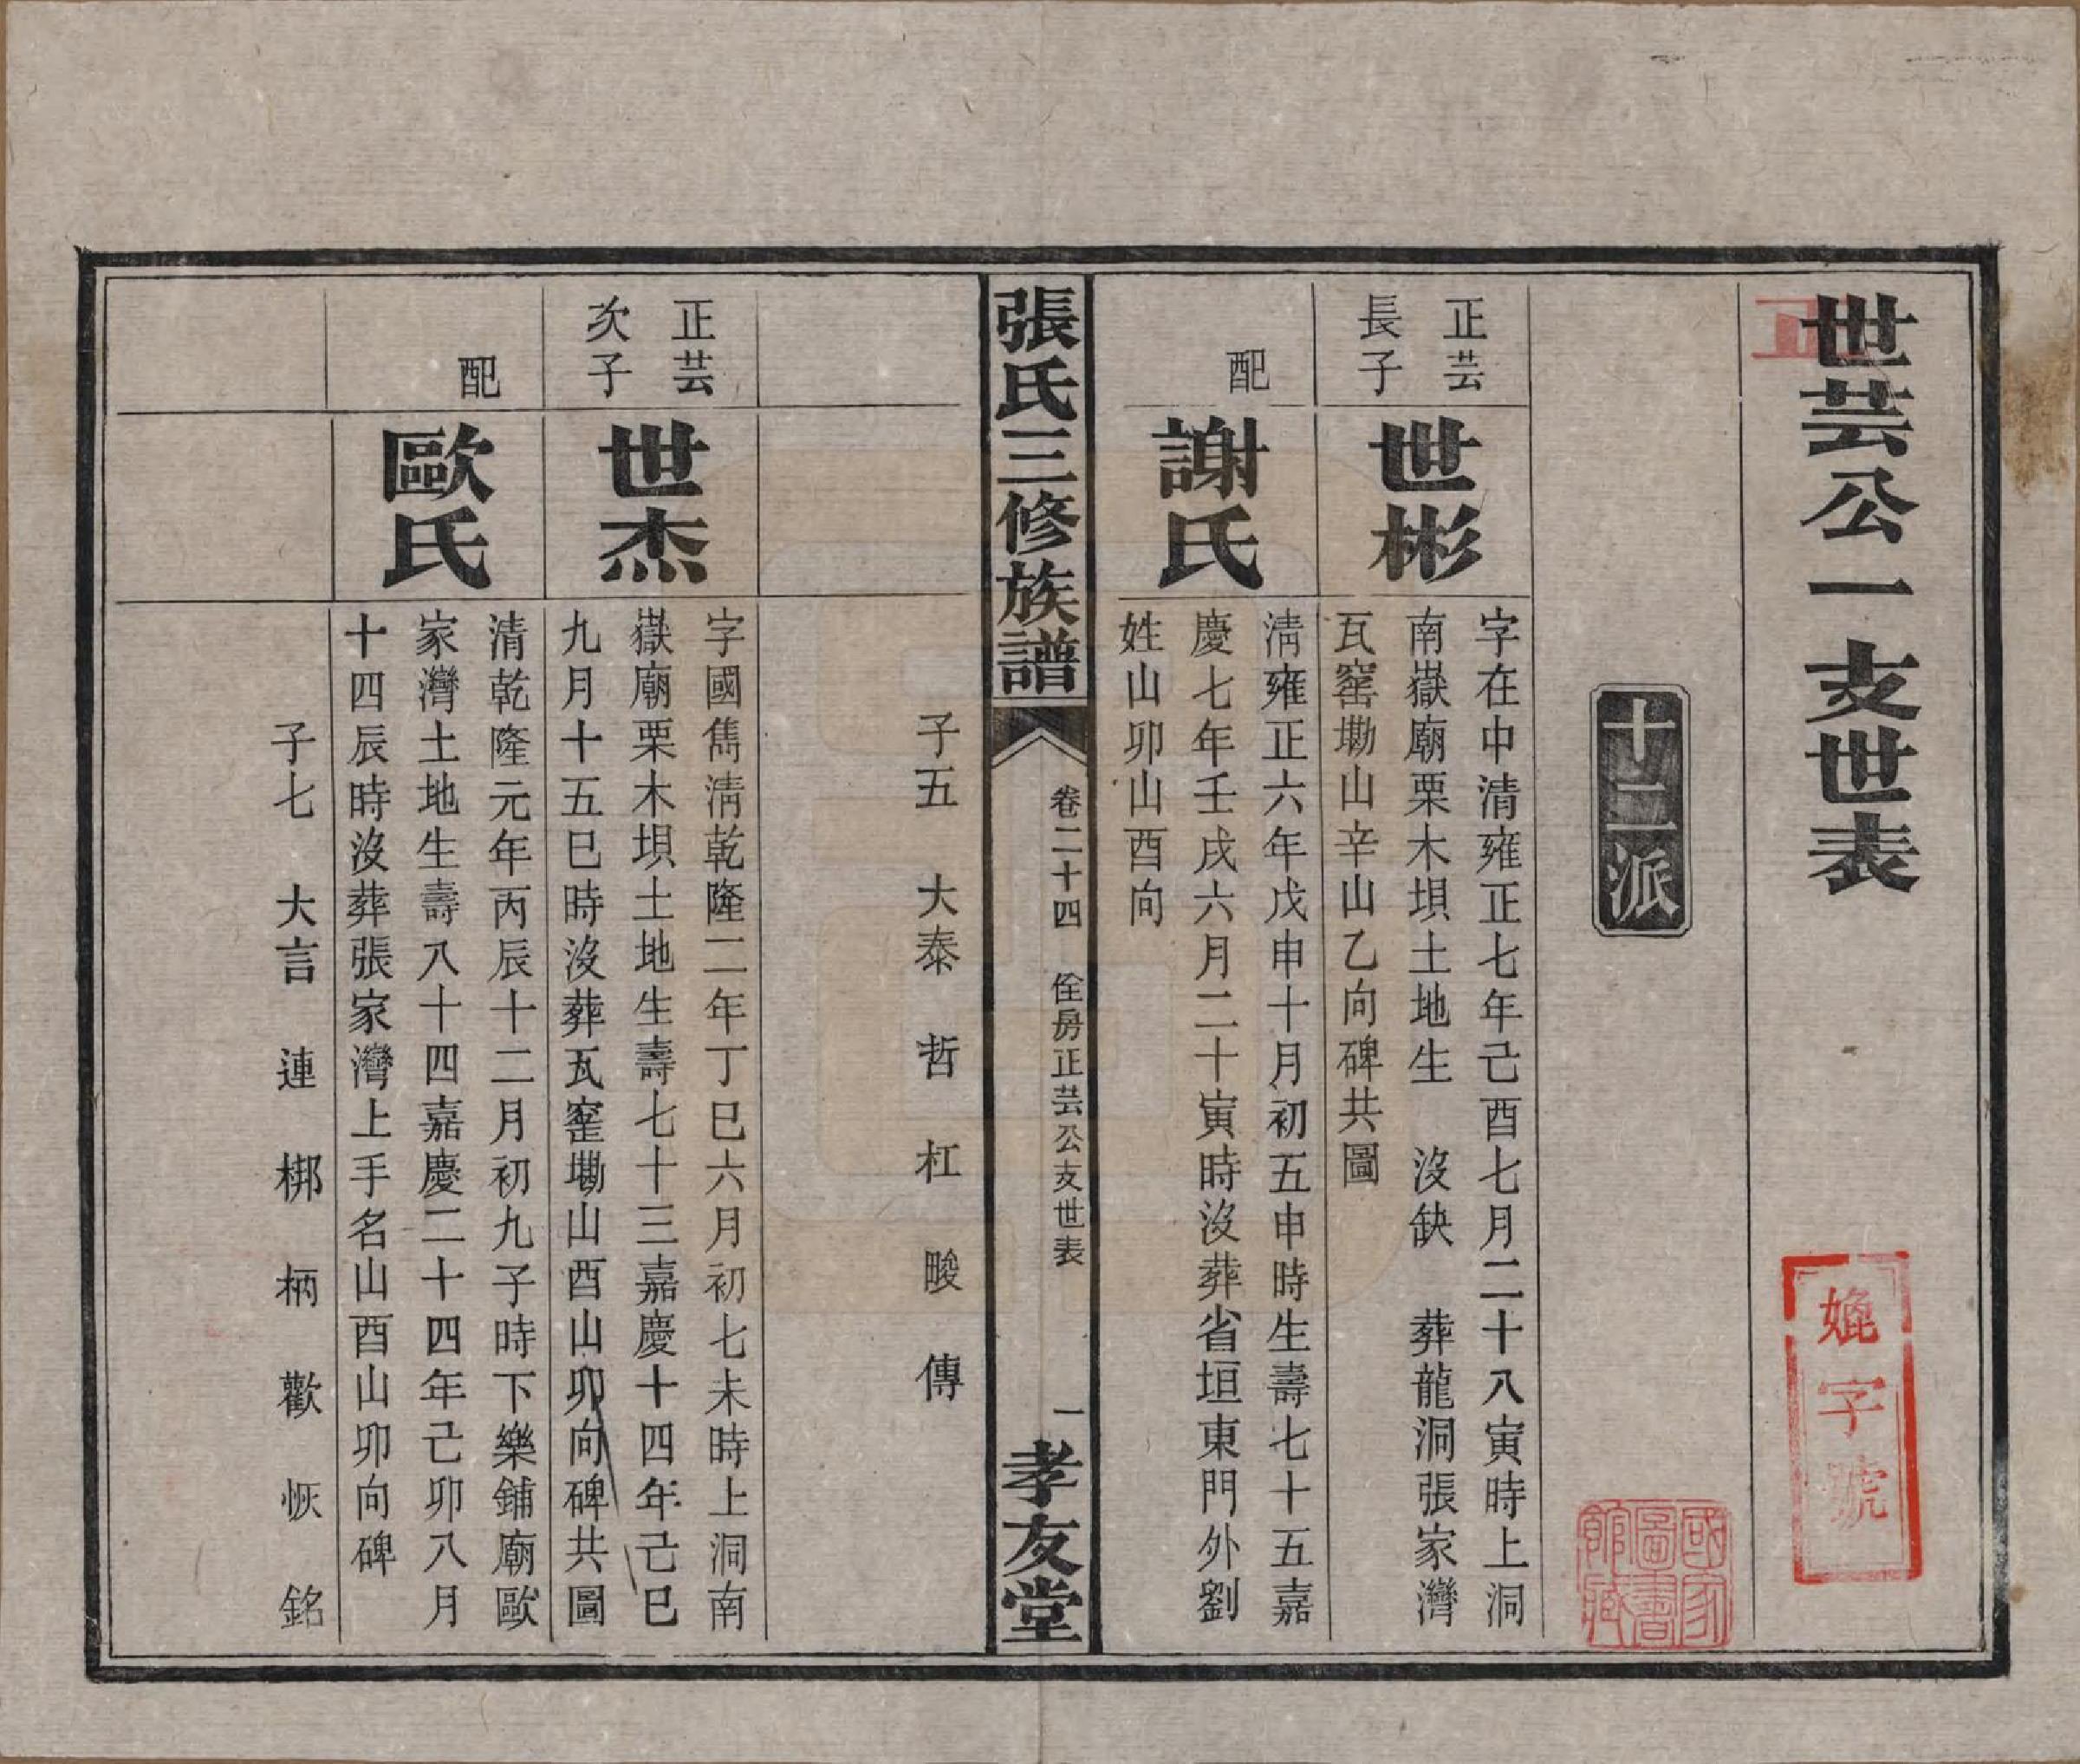 世芸公一支世表
正
媲字號
國家圖書館藏
十二派
正芸
長子
世彬
字在中清雍正七年己酉七月二十八寅時上洞
南嶽廟栗木垻土地生 沒缺 葬龍洞張家灣
瓦窰墈山辛山乙向碑共圖
配
謝氏
淸雍正六年戊申十月初五申時生壽七十五嘉
慶七年壬戌六月二十寅時沒葬省垣東門外劉
姓山卯山酉向
張氏三修族譜
卷二十四 佺房正芸公支世表 一
孝友堂
子五 大泰 哲 杠 畯 傳
正芸
次子
世杰
字國雋淸乾隆二年丁巳六月初七未時上洞南
嶽廟栗木垻土地生壽七十三嘉慶十四年己巳
九月十五巳時沒葬瓦窰墈山酉山卯向碑共圖
配
歐氏
清乾隆元年丙辰十二月初九子時下樂鋪廟歐
家灣土地生壽八十四嘉慶二十四年己卯八月
十四辰時沒葬張家灣上手名山酉山卯向碑
子七 大言 連 梆 柄 歡 恢 銘